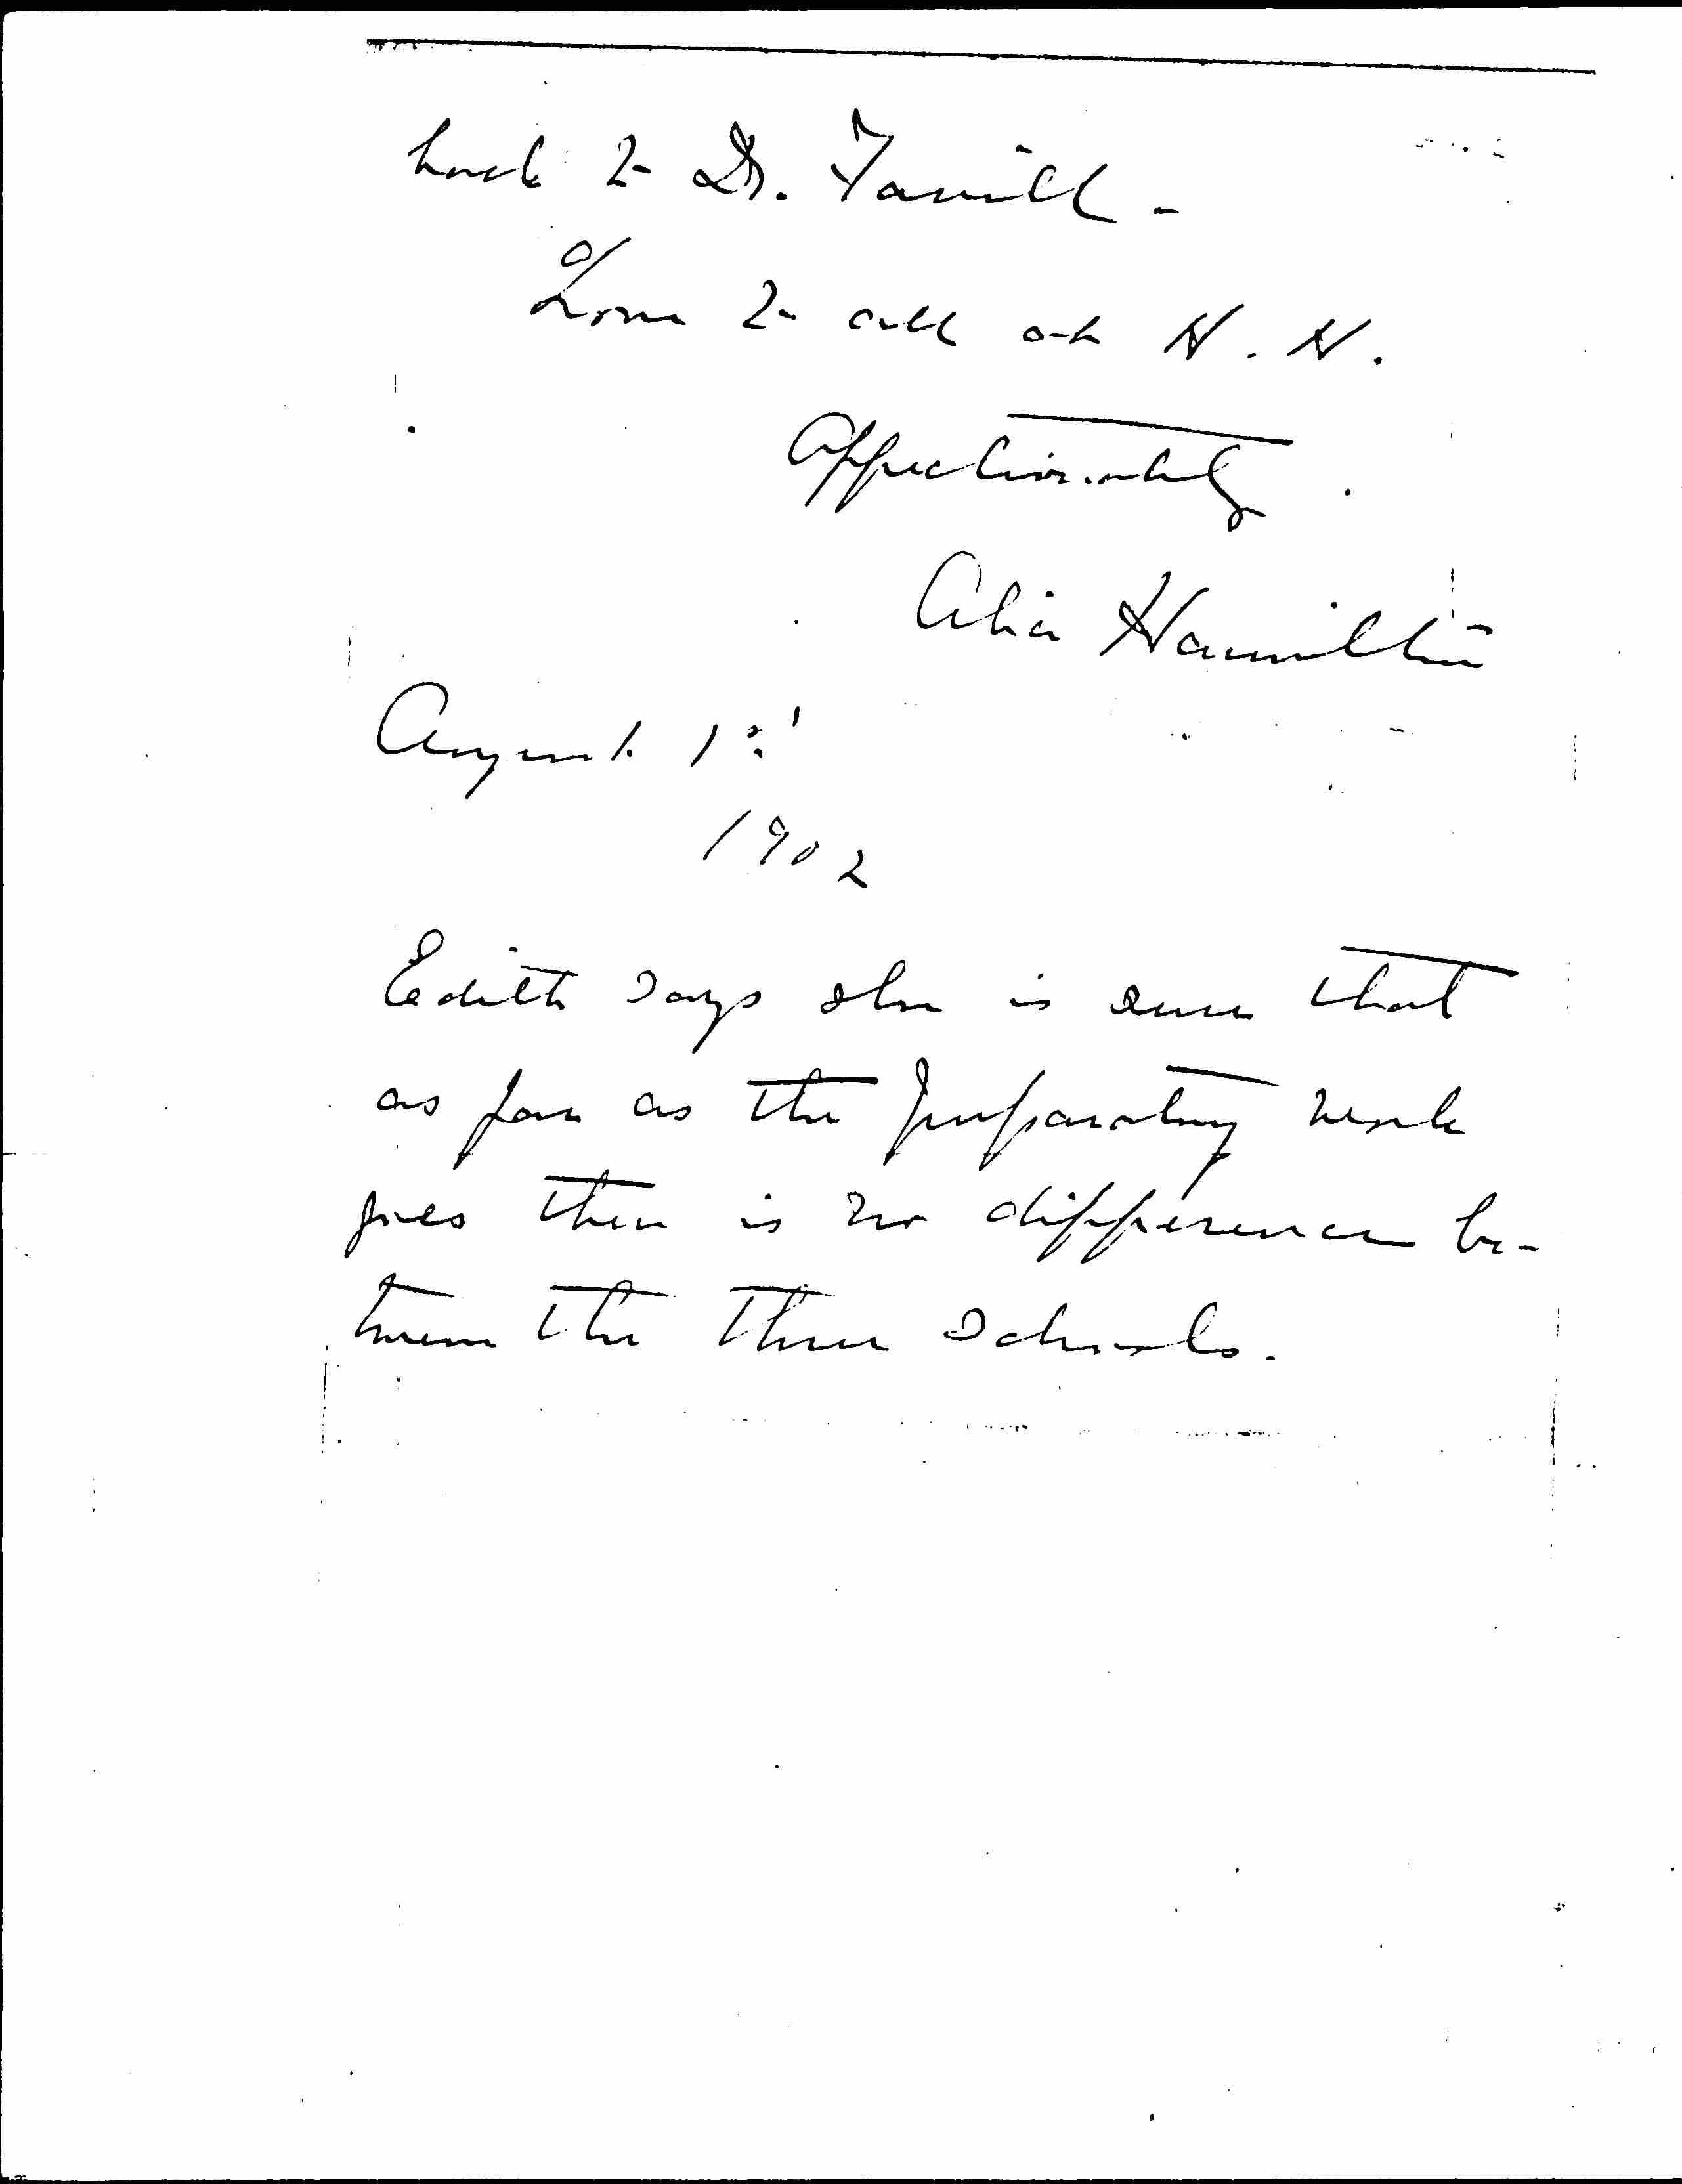 back to Dr. Favill -
Love to all at H. H.
Affectionately
Alice Hamilton
August 1st
1902
Edith says she is sure that
as far as the preparatory work
goes there is no difference be-
tween the three schools.